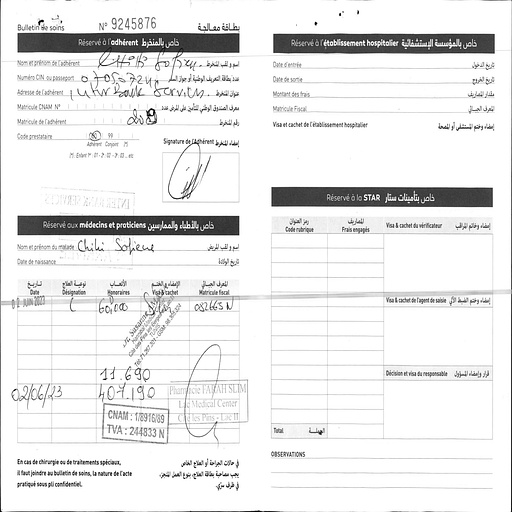 Bulletin de soins N° 9245876 بطاقة معالجة
Réservé à l'adhérent خاص بالمنخرط
Nom et prénom de l'adhérent Chihi Sofiene اسم و لقب المنخرط
Numéro CIN ou passeport عدد بطاقة التعريف الوطنية أو جواز السفر
Adresse de l'adhérent Inter Bank Services عنوان المنخرط
Matricule CNAM N° معرف الصندوق الوطني للتأمين على المرض عدد
Matricule de l'adhérent رقم المنخرط
Code prestataire 99 Signature de l'Adhérent إمضاء المنخرط
Adhérent Conjoint (*)
(*) : Enfant N° : 01 - 2 : 02 - 3 : 03 ... etc
INTER BANK SERVICES
Réservé aux médecins et praticiens خاص بالأطباء والممارسين
Nom et prénom du malade Chihi Sofiene اسم و لقب المريض
Date de naissance تاريخ الولادة
تاريخ Date نوعية العلاج Désignation الأتعاب Honoraires الإمضاء و الختم Visa & cachet المعرف الجبائي Matricule fiscal
02 JUIN 2023 C 60,000
11.690
02/06/23 407.190
Pharmacie TABAH SLIM
Lac Medical Center
Cité les Pins - Lac II
CNAM : 1/8916/89
TVA : 244833 N
En cas de chirurgie ou de traitements spéciaux,
il faut joindre au bulletin de soins, la nature de l'acte
pratiqué sous pli confidentiel.
في حالات الجراحة أو العلاج الخاص
يجب مصاحبة بطاقة العلاج، بنوع العمل المنجز،
في ظرف سري.
Réservé à l'établissement hospitalier خاص بالمؤسسة الإستشفائية
Date d'entrée تاريخ الدخول
Date de sortie تاريخ الخروج
Montant des frais مقدار المصاريف
Matricule Fiscal المعرف الجبائي
Visa et cachet de l'établissement hospitalier إمضاء وختم المستشفى أو المصحة
Réservé à la STAR خاص بتأمينات ستار
رمز العنوان Code rubrique المصاريف Frais engagés Visa & cachet du vérificateur إمضاء وخاتم المراقب
Visa & cachet de l'agent de saisie إمضاء وختم الضبط الآلي
Décision et visa du responsable قرار وإمضاء المسؤول
Total الجملة
OBSERVATIONS